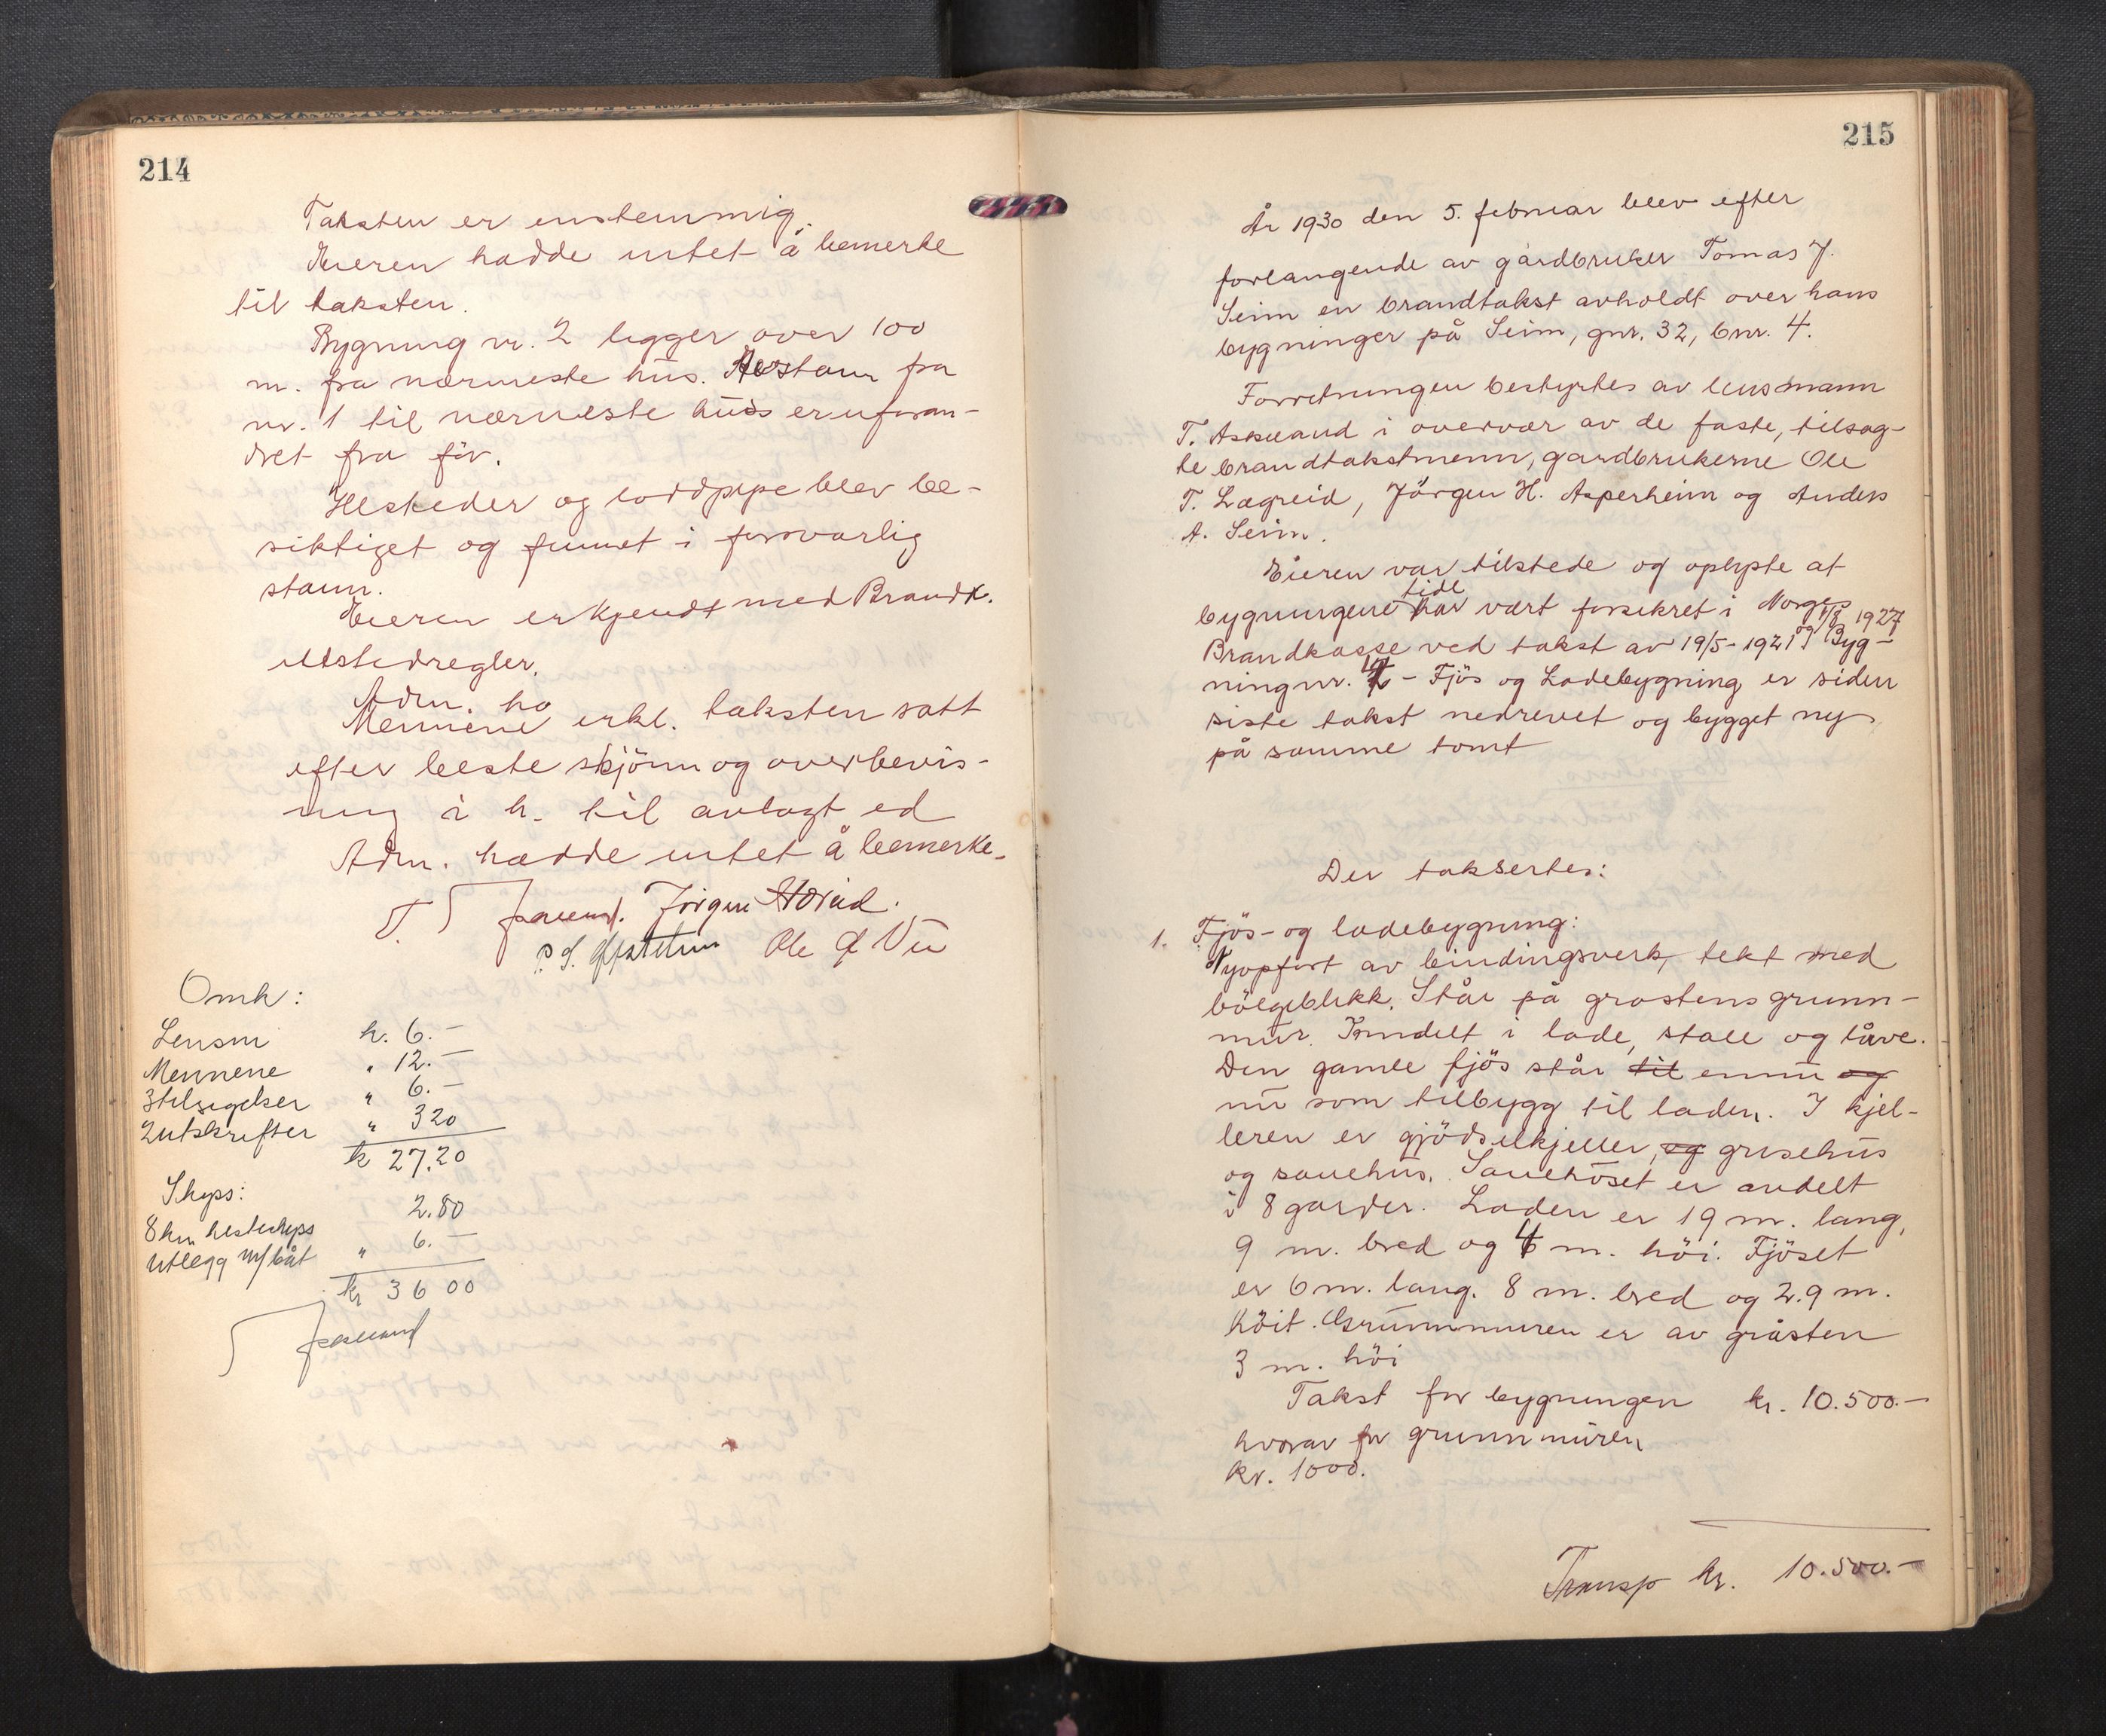 214
Taksten er enstemmig.
Eieren hadde intet å bemerke
til taksten.
Bygning nr. 2 ligger over 100
m. fra nærmeste hus. Avstann fra
nr. 1 til nærmeste huus er uforan-
dret fra för.
Ilsteder og loddpipe blev be-
siktiget og funnet i forsvarlig
stann.
Eieren er kjendt med Brandk.
ildstedregler.
Adm. ha
Mennene erkl. taksten satt
efter beste skjönn og overbevis-
ning i h. til avlagt ed
Adm. hadde intet å bemerke.
T. Jörgen
Ole
Omk:
Lensm kr. 6.-
Mennene " 12.-
3 tilsigelser " 6.-
2 utskrifter " 320
kr 27.20
Skyss:
8 km hesteskyss 2.80
Utlegg m/båt " 6.-
kr 36 00
215
År 1930 den 5. februar blev efter
forlangende av gårdbruker Tomas J.
Seim en brandtakst avholdt over hans
bygninger på Seim, gnr. 32, bnr. 4.
Forretningen bestyrtes av lensmann
T. Askeland i overvær av de faste, tilsag-
te brandtakstmenn, gardbrukerne Ole
T. Lægreid, Jörgen H. Asperheim og Anders
A. Seim.
Eieren var tilstede og oplyste at
tidl
bygningene har vært forsikret i Norges
Brandkasse ved takst av 19/5-1921 og 1/8 1927 Byg-
ning nr. 4 - Fjös og Ladebygning er siden
siste takst nedrevet og bygget ny
på samme tomt
Der taksertes:
1. Fjös- og ladebygning:
Nyopfört av bindingsverk, tekt med
bölgeblikk. Står på grastens grunn-
mur. Inndelt i lade, stall og låve.
Den gamle fjös står til ennu og
nu som tilbygg til laden. I kjel-
leren er gjödselkjeller, og grisehus
og sauehus. Sauehuset er avdelt
i 8 garder. Laden er 19 m. lang,
9 m. bred og 4 m. höi. Fjöset
er 6 m. lang. 8 m. bred og 2.9 m.
höit. Grunnmuren er av gråsten
3 m. höi
Takst for bygningen kr. 10.500.-
hvorav for grunnmuren
kr. 1000.
Transp kr. 10.500.-